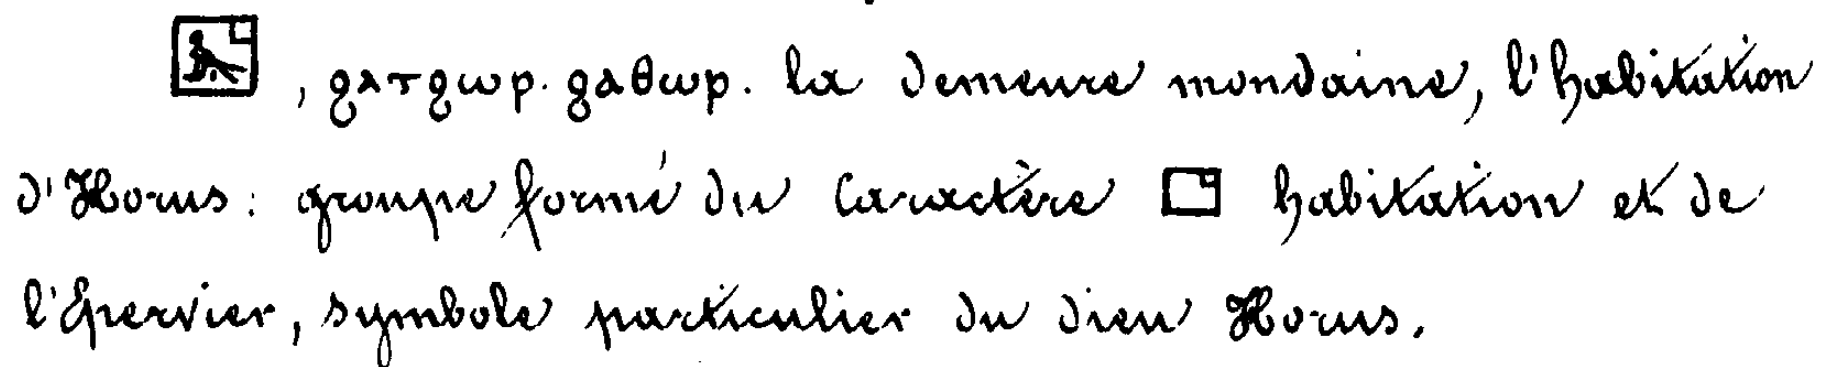 𓉡, ϩⲁⲧϩⲱⲣ. ϩⲁⲑⲱⲣ. la demeure mondaine, l'habitation
d'Horus : groupe formé du caractère 𓉗 habitation et de
l'Épervier, symbole particulier du dieu Horus.